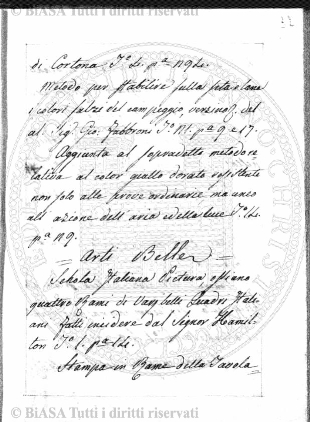 © BiASA Tutti i diritti riservati
di Cortona. T.o 4. p.a 194.
Metodo per stabilire sulla seta e lana
i colori falzi del campeggio, verzino, del
al Sig.r Gio. Fabbroni T.o 11. p.a 9 e 17.
Aggiunta al sopradetto metodo re-
lativa al color giallo dorato resistente
non solo alle prove ordinarie ma anco
all'azione dell'aria e della luce T.o 14.
p.a 119.
= Arti Belle =
Schola Italiana Picturæ, ossiano
quattro Rami di Var belli Quadri Itali-
ani fatti incidere dal Signor Hamil-
ton T.o 1. p.a 14.
Stampa in Rame della Tavola-
© BiASA Tutti i diritti riservati